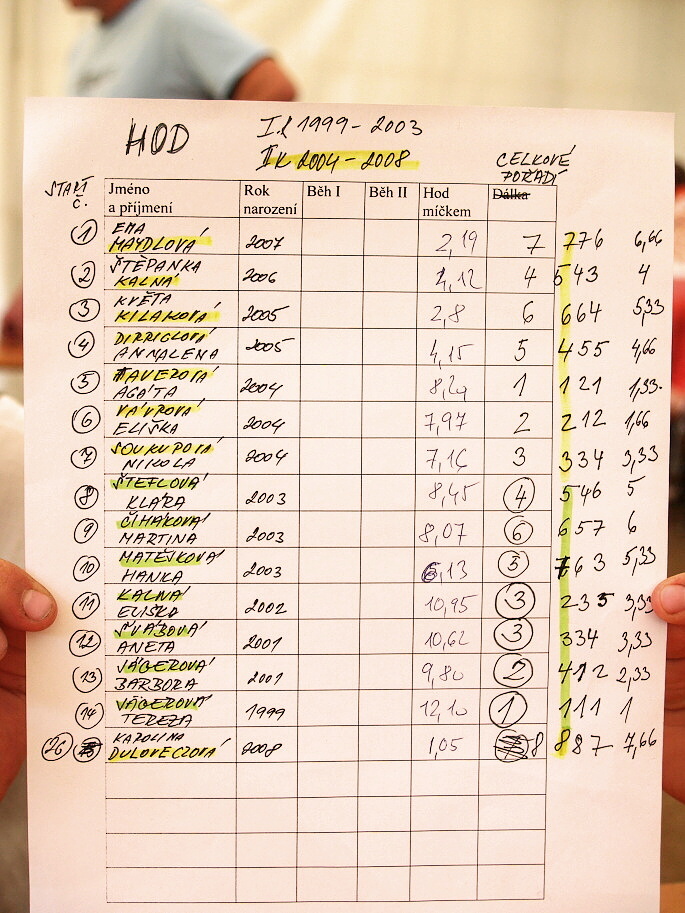 HOD
I.k 1999-2003
II k 2004-2008
CELKOVÉ
POŘADÍ
START
Č.
Jméno
a příjmení
Rok
narození
Běh I
Běh II
Hod
míčkem
Dálka
1 EMA
MAYDLOVÁ 2007 2,19 7 776 6,66
2 ŠTĚPANKA
KALNÁ 2006 4,12 4 543 4
3 KVĚTA
KILAKOVÁ 2005 2,8 6 664 5,33
4 DIRRIGLOVÁ
ANNALENA 2005 4,15 5 455 4,66
5 TAVEROVÁ
AGÁTA 2004 8,29 1 121 1,33
6 VÁVROVÁ
ELIŠKA 2004 7,97 2 212 1,66
7 SOUKUPOVÁ
NIKOLA 2004 7,16 3 334 3,33
8 ŠTEFLOVÁ
KLÁRA 2003 8,45 4 546 5
9 ČIHÁKOVÁ
MARTINA 2003 8,07 6 657 6
10 MATĚJKOVÁ
HANKA 2003 6,13 5 763 5,33
11 KALNÁ
ELIŠKA 2002 10,95 3 235 3,33
12 ŠVÁBOVÁ
ANETA 2001 10,62 3 334 3,33
13 JÄGEROVÁ
BARBORA 2001 9,80 2 412 2,33
14 JÄGEROVÁ
TEREZA 1999 12,10 1 111 1
26 KAROLINA
DULOVECZOVÁ 2008 1,05 8 887 7,66